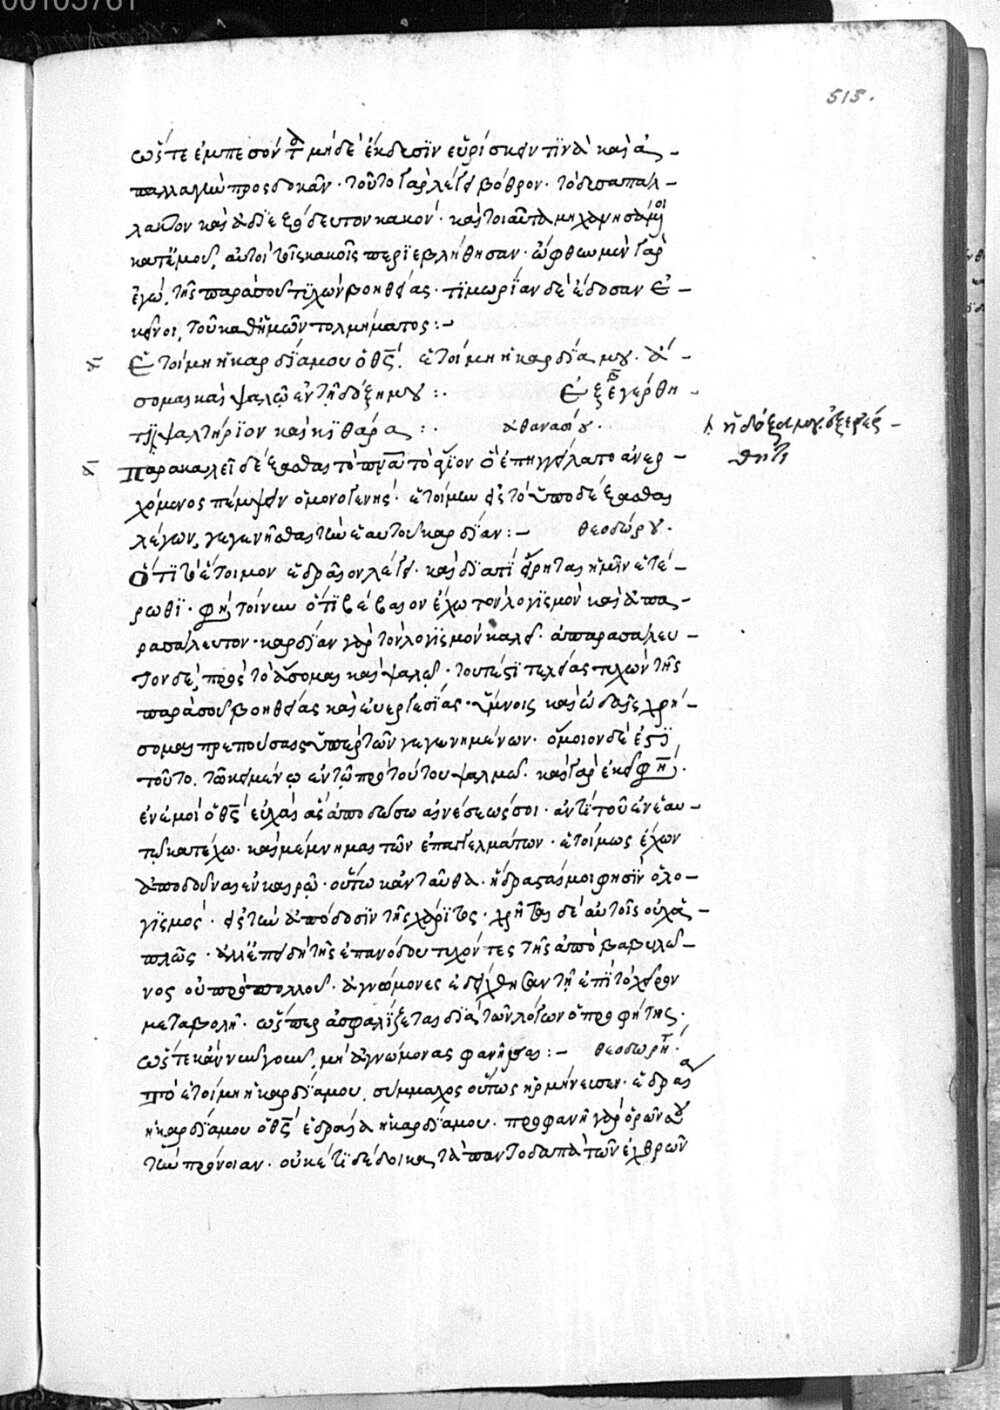 515.
ὥστε ἐμπεσόντα μὴ δὲ ἔκδυσιν εὑρίσκειν τινὰ καὶ ἀ-
παλλαγὴν προσδοκᾶν· τοῦτο γὰρ λέγει βόθρον· τὸ δυσαπάλ-
λακτον καὶ ἀδιεξόδευτον κακόν· καὶ τοιαῦτα μηχανησάμενοι
κατ' ἐμοῦ, αὐτοὶ τοῖς κακοῖς περιεβλήθησαν· ὤφθημεν γὰρ
ἐγὼ, τῆς παρὰ σοῦ τυχὼν βοηθείας· τιμωρίαν δὲ ἔδοσαν ἐ-
κεῖνοι, τοῦ καθ' ἡμῶν τολμήματος:-
Ἑτοίμη ἡ καρδία μου ὁ θς, ἑτοίμη ἡ καρδία μου· ἄ-
σομαι καὶ ψαλῶ ἐν τῇ δόξῃ μου:. Ἐξεγέρθη-
τι ψαλτήριον καὶ κιθάρα:. ἀθανασίου.
ἡ δόξα μου, ἐξεγέρ-
θητι
Παρακαλεῖ δέξασθαι τὸ πνα τὸ ἅγιον ὃ ἐπηγγείλατο ἀνερ-
χόμενος πέμψειν ὁ μονογενής· ἑτοίμην εἰς τὸ ὑποδέξασθαι
λέγων, γεγενῆσθαι τὴν ἑαυτοῦ καρδίαν:- θεοδώρου.
Ὅτι τὸ ἕτοιμον ἑδραῖον λέγει· καὶ δι' ἅπερ εἴρηται ἡμῖν ἑτέ-
ρωθι· φησὶ τοίνυν ὅτι βέβαιον ἔχω τὸν λογισμὸν καὶ ἀπα-
ρασάλευτον· καρδίαν γὰρ τὸν λογισμὸν καλεῖ· ἀπαρασάλευ-
τον δὲ, πρὸς τὸ ᾄσομαι καὶ ψαλῶ· τουτέστι τελείας τυχὼν τῆς
παρὰ σοῦ βοηθείας καὶ εὐεργεσίας· ὕμνοις καὶ ᾠδαῖς χρή-
σομαι πρεπούσαις ὑπὲρ τῶν γεγενημένων· ὅμοιον δέ ἐστι
τοῦτο, τῷ κειμένῳ ἐν τῷ πρὸ τούτου ψαλμῷ· καὶ γὰρ ἐκεῖ φησὶ·
ἐν ἐμοὶ ὁ θς εὐχαὶ ἃς ἀποδώσω αἰνέσεώς σοι· ἀντὶ τοῦ ἐν ἐμαυ-
τῷ κατέχω· καὶ μέμνημαι τῶν ἐπαγγελμάτων· ἑτοίμως ἔχων
ἀποδοῦναι ἐν καιρῷ· οὕτω κἀνταῦθα· ἥδρασταί μοι φησὶν ὁ λο-
γισμὸς· εἰς τὴν ἀπόδοσιν τῆς χάριτος· χρῆται δὲ αὐτοῖς οὐχ ἁ-
πλῶς· ἀλλ' ἐπειδὴ τῆς ἐπανόδου τυχόντες τῆς ἀπὸ βαβυλῶ-
νος οὐ πρὸ πολλοῦ· ἀγνώμονες ἐδείχθησαν τῇ ἐπὶ τὸ χεῖρον
μεταβολῇ· ὥσπερ ἀσφαλίζεται διὰ τῶν λόγων ὁ προφήτης·
ὥστε κἂν νῦν γοῦν, μὴ ἀγνώμονας φανῆναι:- θεοδωρήτ.
Τὸ ἑτοίμη ἡ καρδία μου, σύμμαχος οὕτως ἡρμήνευσεν· ἑδραία
ἡ καρδία μου ὁ θς ἑδραία ἡ καρδία μου· προφανῆ γὰρ ὁρῶν σου
τὴν πρόνοιαν· οὐκέτι δέδοικα τὰ παντοδαπὰ τῶν ἐχθρῶν